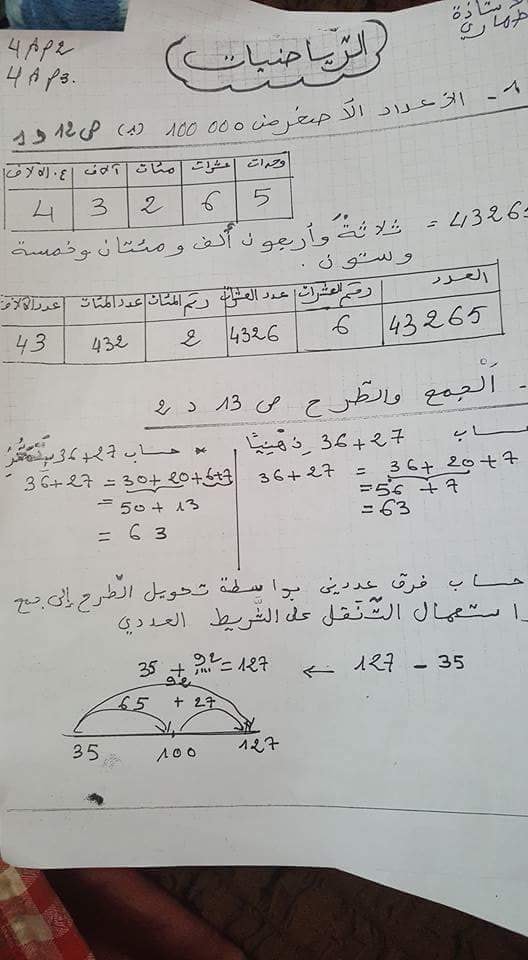 الأستاذة
طهاري
4AP2
4AP3.
الرّياضيات
1 - الأعداد الأصغر من 100 000 (1) ص 12 د 1
وحدات | عشرات | مئات | آلاف | ع. الآلاف
5 | 6 | 2 | 3 | 4
43265 = ثلاثةٌ وأربعون ألف ومئتان وخمسة
وستون.
العدد | رقم العشرات | عدد العشرات | رقم المئات | عدد المئات | عدد الآلاف
43265 | 6 | 4326 | 2 | 432 | 43
- الجمع والطّرح ص 13 د 2
حساب 36+27 ذهنيّا
36+27 = 36+20+7
=56 +7
=63
* حساب 36+27
36+27 = 30+20+6+7
= 50+13
= 63
حساب فرق عددين بواسطة تحويل الطّرح إلى جمع
استعمال التّنقل على الشّريط العددي
127 - 35 ← 35 + 92 = 127
92
65 + 27
35 100 127